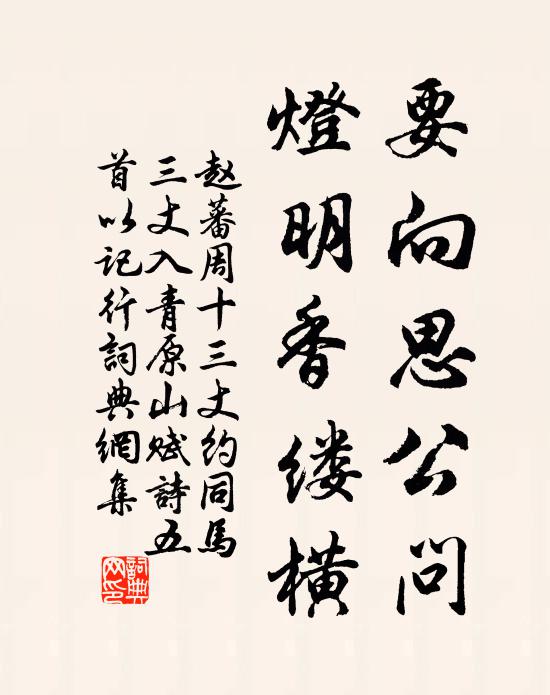 要向思公問
燈明香缕橫
赵蕃周十三丈約同馬
三丈入青原山赋詩五
首以記行詞典網集
詞典
网印